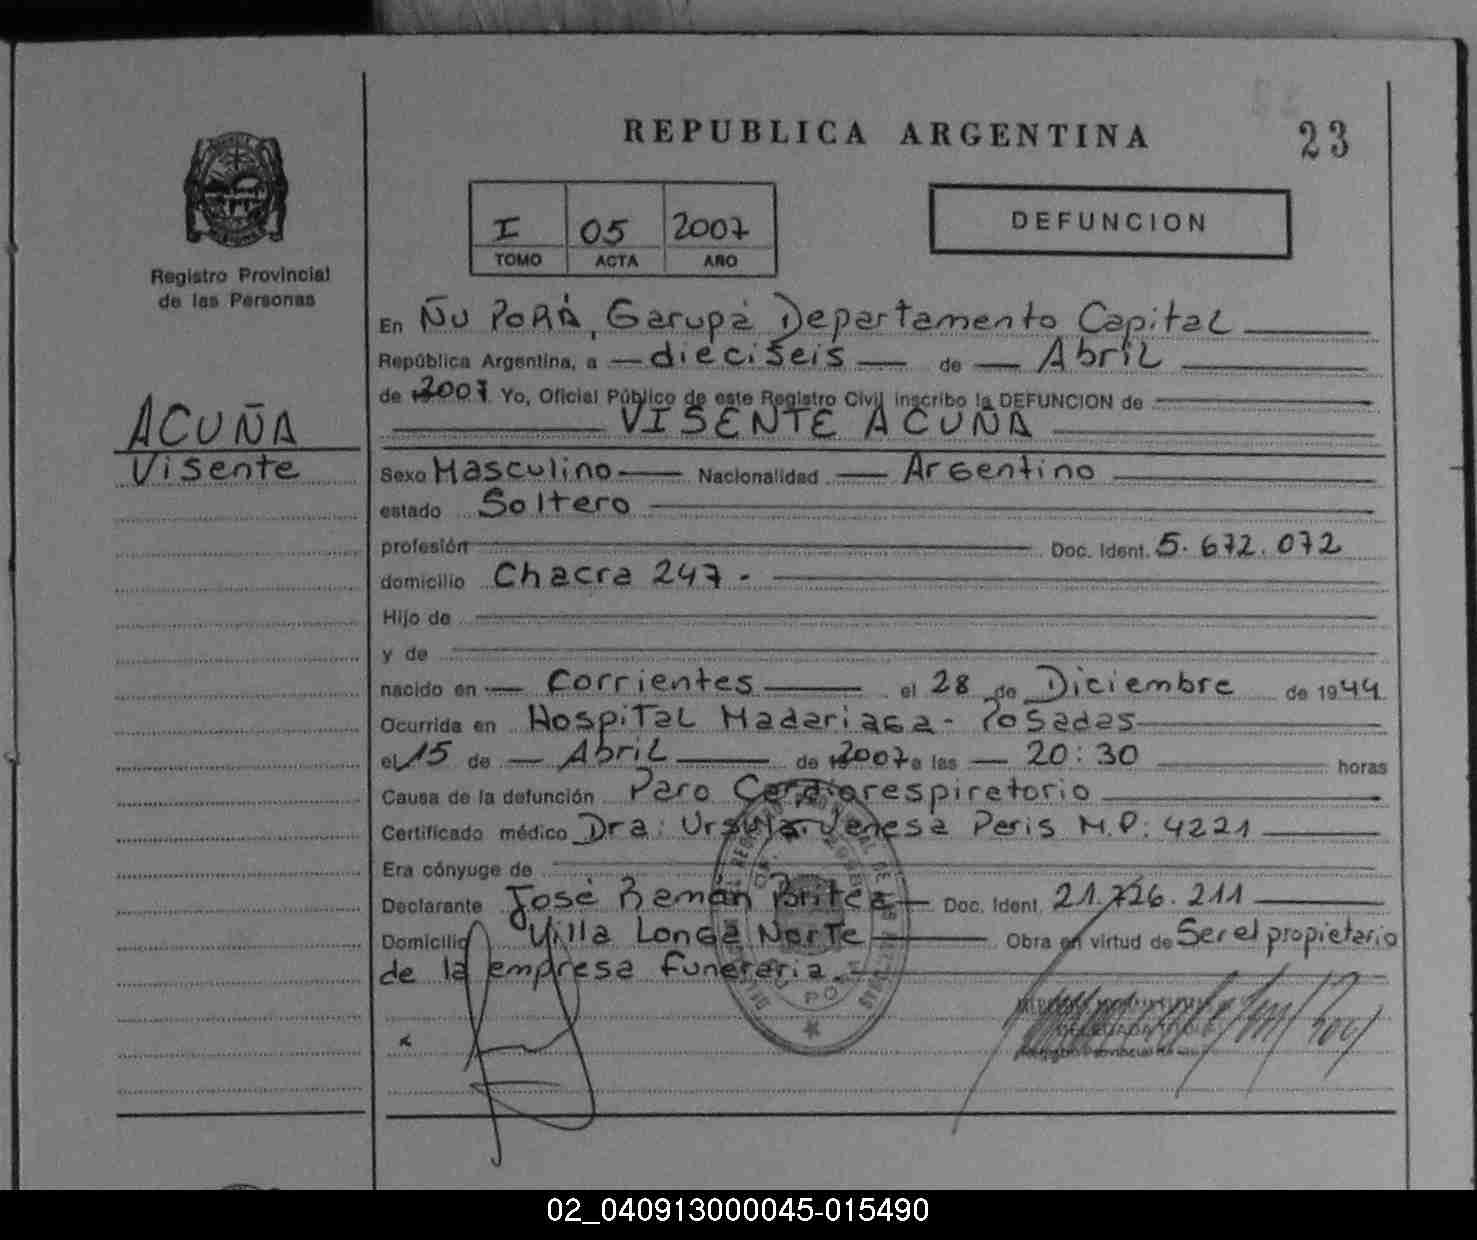 REPUBLICA ARGENTINA
23
Registro Provincial
de las Personas
I 05 2007
TOMO ACTA AÑO
DEFUNCION
En ÑU PORÁ, Garupá Departamento Capital
República Argentina, a dieciseis de Abril
de 2007. Yo, Oficial Público de este Registro Civil inscribo la DEFUNCION de
VISENTE ACUÑA
ACUÑA
Visente
Sexo Masculino Nacionalidad Argentino
estado Soltero
profesión Doc. Ident. 5.672.072
domicilio Chacra 247.
Hijo de
y de
nacido en Corrientes el 28 de Diciembre de 1944
Ocurrida en Hospital Madariaga - Posadas
el 15 de Abril de 2007 a las 20:30 horas
Causa de la defunción Paro Cardiorespiratorio
Certificado médico Dra: Ursula Venesa Peris M.P: 4221
Era cónyuge de
Declarante José Ramón Britez Doc. Ident. 21.726.211
Domicilio Villa Longa Norte Obra en virtud de Ser el propietario
de la empresa funeraria.
02_040913000045-015490